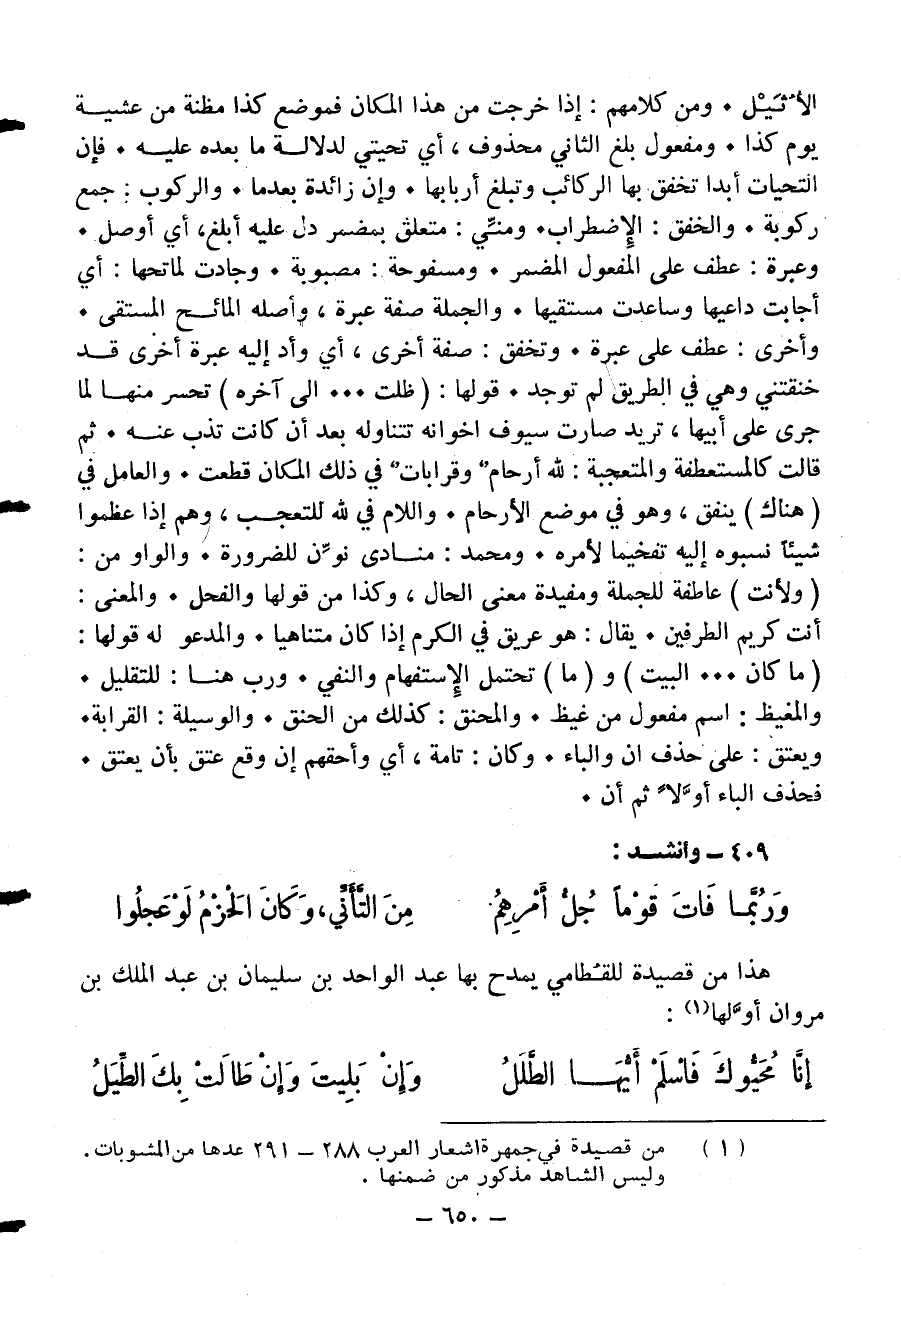 الأُثَيْل ٠ ومن كلامهم : إذا خرجت من هذا المكان فموضع كذا مظنة من عشيــة
يوم كذا ٠ ومفعول بلغ الثاني محذوف ، أي تحيتي لدلالــة ما بعده عليــه ٠ فإن
التحيات أبدا تخفق بها الركائب وتبلغ أربابها ٠ وإن زائدة بعدما ٠ والركوب : جمع
ركوبة ٠ والخفق : الإضطراب٠ ومنّي : متعلق بمضمر دل عليه أبلغ، أي أوصل ٠
وعبرة : عطف على المفعول المضمر ٠ ومسفوحة : مصبوبة ٠ وجادت لماتحها : أي
أجابت داعيها وساعدت مستقيها ٠ والجملة صفة عبرة ، وأصله المائــح المستقى ٠
وأخرى : عطف على عبرة ٠ وتخفق : صفة أخرى ، أي وأد إليه عبرة أخرى قــد
خنقتني وهي في الطريق لم توجد ٠ قولها : ( ظلت ٠٠٠ الى آخره ) تحسر منهــا لما
جرى على أبيها ، تريد صارت سيوف اخوانه تتناوله بعد أن كانت تذب عنــه ٠ ثم
قالت كالمستعطفة والمتعجبة : لله أرحامٌ وقراباتٌ في ذلك المكان قطعت ٠ والعامل في
( هناك ) ينفق ، وهو في موضع الأرحام ٠ واللام في لله للتعجــب ، وهم إذا عظموا
شيئاً نسبوه إليه تفخيما لأمره ٠ ومحمد : منــادى نوّن للضرورة ٠ والواو من :
( ولأنت ) عاطفة للجملة ومفيدة معنى الحال ، وكذا من قولها والفحل ٠ والمعنى :
أنت كريم الطرفين ٠ يقال : هو عريق في الكرم إذا كان متناهيا ٠ والمدعو له قولها :
( ما كان ٠٠٠ البيت ) و ( ما ) تحتمل الإستفهام والنفي ٠ ورب هنــا : للتقليل ٠
والمغيظ : اسم مفعول من غيظ ٠ والمحنق : كذلك من الحنق ٠ والوسيلة : القرابة٠
ويعتق : على حذف ان والباء ٠ وكان : تامة ، أي وأحقهم إن وقع عتق بأن يعتق ٠
فحذف الباء أوّلاً ثم أن ٠
٤٠٩ ــ وأنشــد :
وَرُبَّمــا فَاتَ قوْماً جُلُّ أَمْرِهِمُ مِنَ التَّأَنِّي، وَكَانَ الحَزْمُ لَوْ عَجِلُوا
هذا من قصيدة للقُطامي يمدح بها عبد الواحد بن سليمان بن عبد الملك بن
مروان أوّلها(١) :
إنَّا مُحَيُّوكَ فَاسْلَمْ أَيُّهَــا الطَّلَلُ وَإِنْ بَلِيتَ وَإِنْ طَالَتْ بِكَ الطِّيَلُ
( ١ ) من قصيدة في جمهرة اشعار العرب ٢٨٨ ــ ٢٩١ عدها من المشوبات .
وليس الشاهد مذكور من ضمنها .
ــ ٦٥٠ ــ